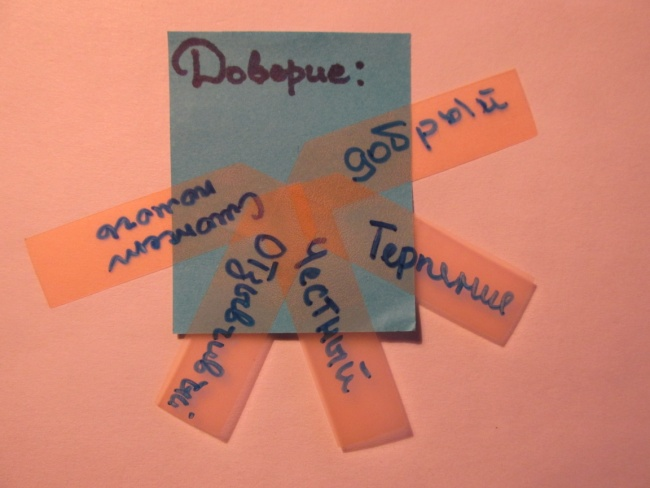 Доверие:
добрый
Терпение
Честный
Отзывчивый
сможет
помочь